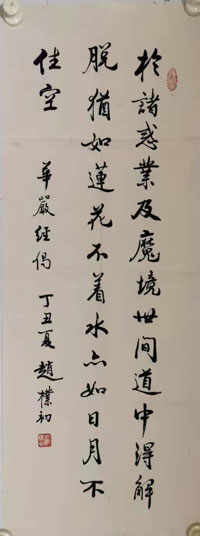 於諸惑業及魔境世間道中得解
脫猶如蓮花不着水亦如日月不
住空
華嚴經偈 丁丑夏 趙樸初